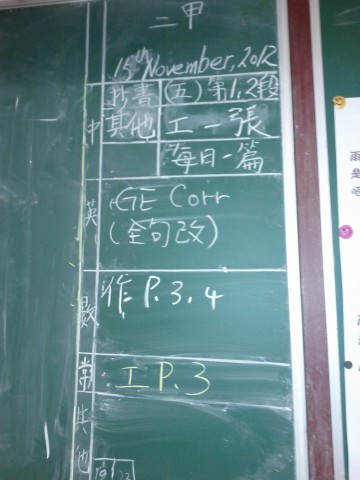 二甲
15th November, 2012
中 抄書 (五)第1,2段
其他 工一張
每日一篇
英 GE Corr
(全句改)
數 作 P.3,4
常 工 P.3
其他
19 23